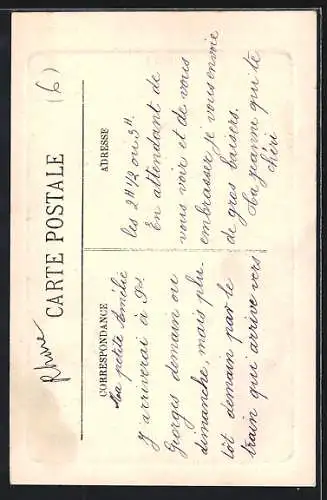 Rhône
(6)
CARTE POSTALE
CORRESPONDANCE
ADRESSE
Ma petite Amélie
J'arriverai à St
Georges demain ou
dimanche, mais plu-
tôt demain par le
train qui arrive vers
les 2H 1/2 ou 3H.
En attendant de
vous voir et de vous
embrasser je vous envoie
de gros baisers.
Ta Jeanne qui te
chéri